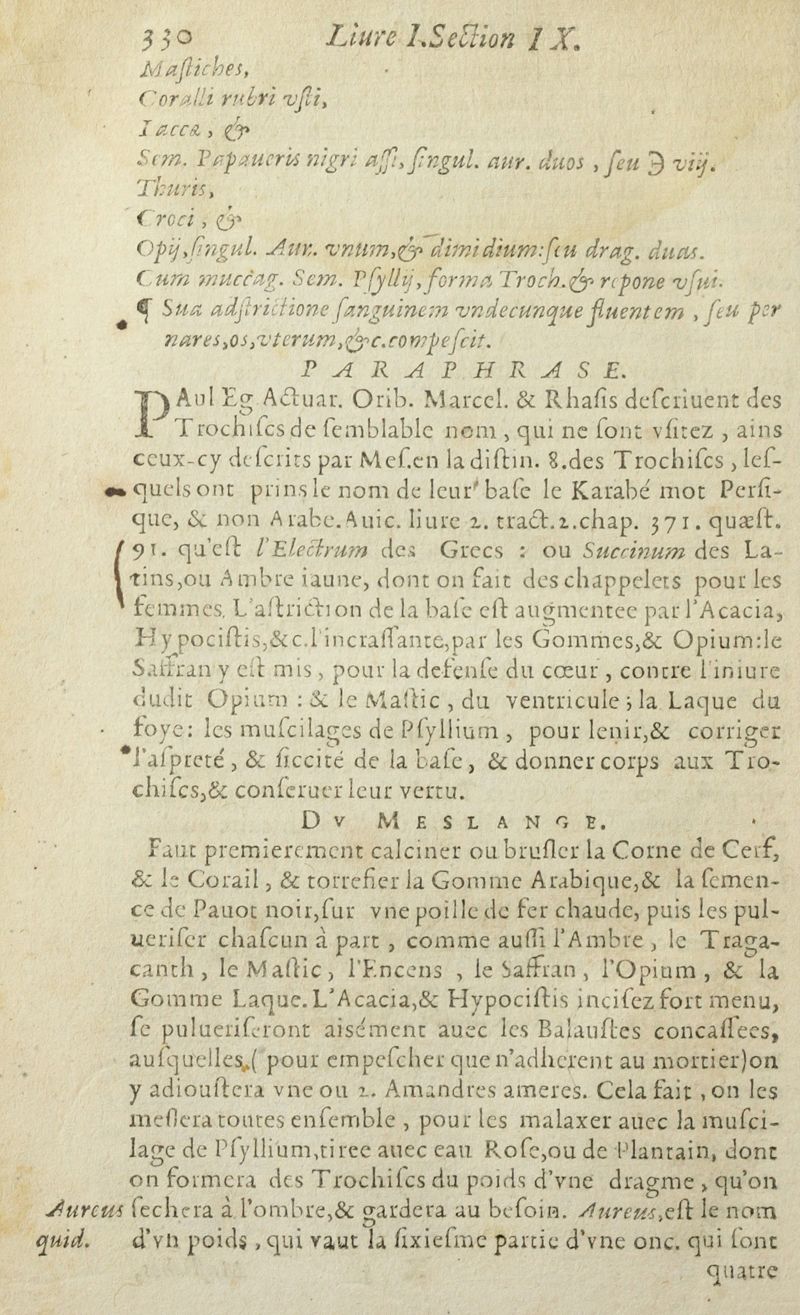 330 Liure I.Section IX.
Mastiches,
Coralli rubri vsti,
Lacca, &
Sem. Papaueris nigri assi, singul. aur. duos, seu ℈ viij.
Thuris,
Croci, &
Opij, singul. Aur. vnum, & dimidium: seu drag. duas.
Cum muccag. Sem. Psyllij, forma Troch. & repone vsui.
¶ Sua adstrictione sanguinem vndecunque fluentem, seu per
nares, os, vterum, &c. compescit.
PARAPHRASE.
PAul Eg Actuar. Orib. Marcel. & Rhasis descriuent des
Trochisces de semblable nom, qui ne sont vsitez, ains
ceux-cy descrits par Mes. en la distin. 8. des Trochisces, les-
quels ont prins le nom de leur base le Karabé mot Persi-
que, & non Arabe. Auic. liure 2. tract. 2. chap. 371. quæst.
91. qu'est l'Electrum des Grecs : ou Succinum des La-
tins, ou Ambre iaune, dont on fait des chappelets pour les
femmes. L'astriction de la base est augmentee par l'Acacia,
Hypocistis, &c. l'incrassante, par les Gommes, & Opium: le
Saffran y est mis, pour la defense du cœur, contre l'iniure
dudit Opium : & le Mastic, du ventricule; la Laque du
foye: les muscilages de Psyllium, pour lenir, & corriger
l'aspreté, & siccité de la base, & donner corps aux Tro-
chisces, & conseruer leur vertu.
DV MESLANGE.
Faut premierement calciner ou brusler la Corne de Cerf,
& le Corail, & torrefier la Gomme Arabique, & la semen-
ce de Pauot noir, sur vne poille de fer chaude, puis les pul-
uerifer chascun à part, comme aussi l'Ambre, le Traga-
canth, le Mastic, l'Encens, le Saffran, l'Opium, & la
Gomme Laque. L'Acacia, & Hypocistis incisez fort menu,
se pulueriseront aisément auec les Balaustes concassees,
ausquelles, (pour empescher que n'adherent au mortier) on
y adioustera vne ou 2. Amandres ameres. Cela fait, on les
meslera toutes ensemble, pour les malaxer auec la musci-
lage de Psyllium, tiree auec eau Rose, ou de Plantain, dont
on formera des Trochisces du poids d'vne dragme, qu'on
Aureus sechera à l'ombre, & gardera au besoin. Aureus, est le nom
quid. d'vn poids, qui vaut la sixiesme partie d'vne onc. qui sont
quatre